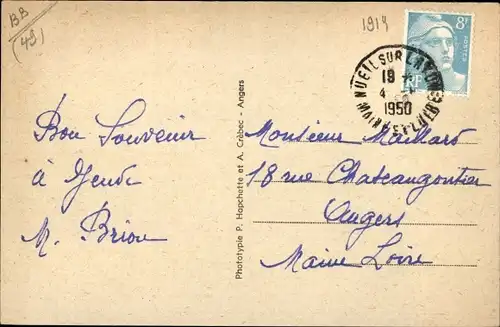 BB
(49)
1919
8F
POSTES
RF
NUEIL SUR LAYON
19
4
1950
MAINE ET LOIRE
Bon Souvenir
à
M. Briou
Phototypie P. Hapchette et A. Crèbec - Angers
Monsieur Maillard
18 rue Chateaugontier
Angers
Maine Loire